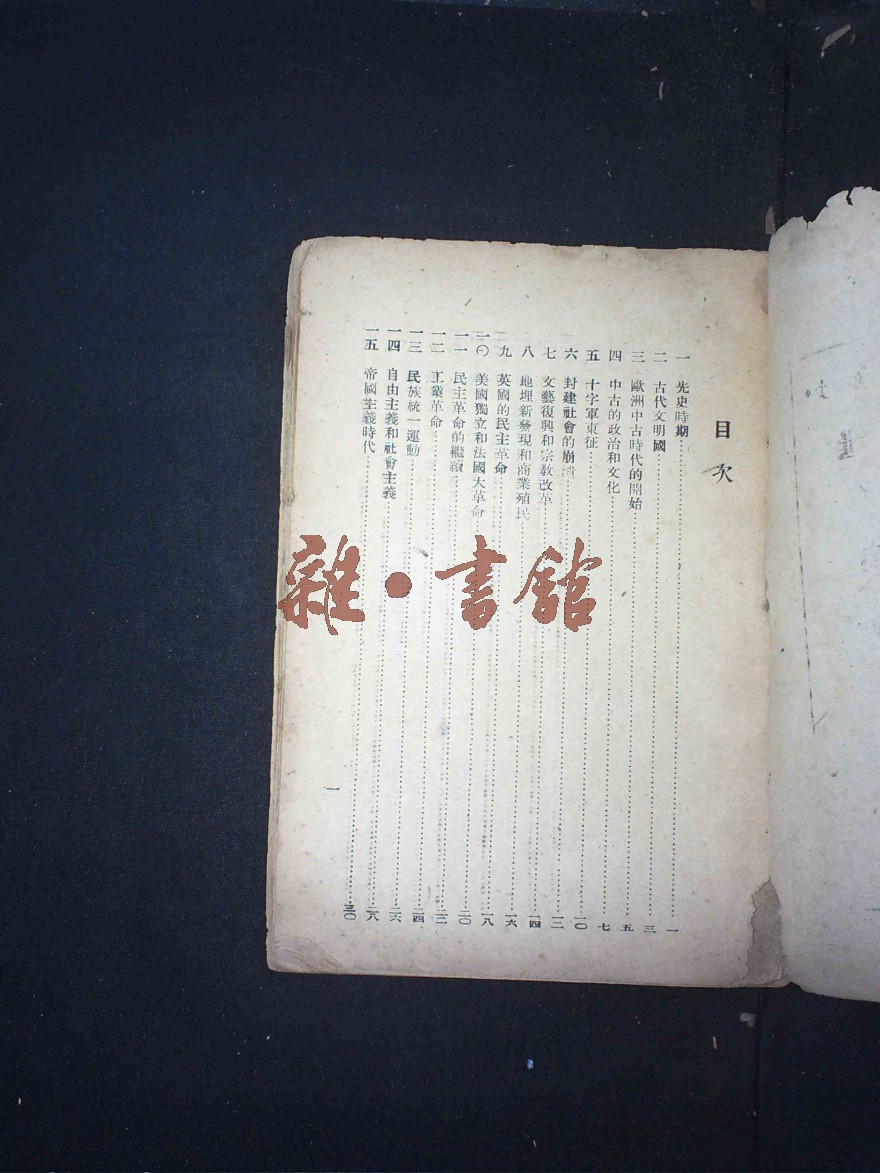 目次
一 先史時期……一
二 古代文明國……三
三 歐洲中古時代的開始……五
四 中古的政治和文化……七
五 十字軍東征……一〇
六 封建社會的崩潰……一二
七 文藝復興和宗敎改革……一四
八 地理新發現和商業殖民……一六
九 英國的民主革命……一八
一〇 美國獨立和法國大革命……二〇
一一 民主革命的繼續……二二
一二 工業革命……二四
一三 民族統一運動……二六
一四 自由主義和社會主義……二八
一五 帝國主義時代……三〇
一
雜·書館